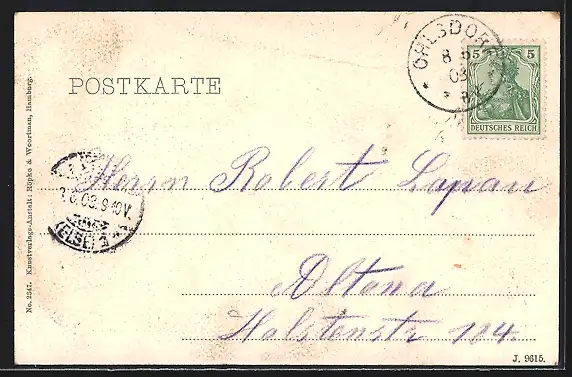 POSTKARTE
OHLSDORF
8 5
03
5 5
DEUTSCHES REICH
Herrn Robert Lapau
03.9-10V.
(ELBE) 1
Altona
Holstenstr 104.
No. 2347. Kunstverlags-Anstalt: Röpke & Woortman, Hamburg.
J. 9615.